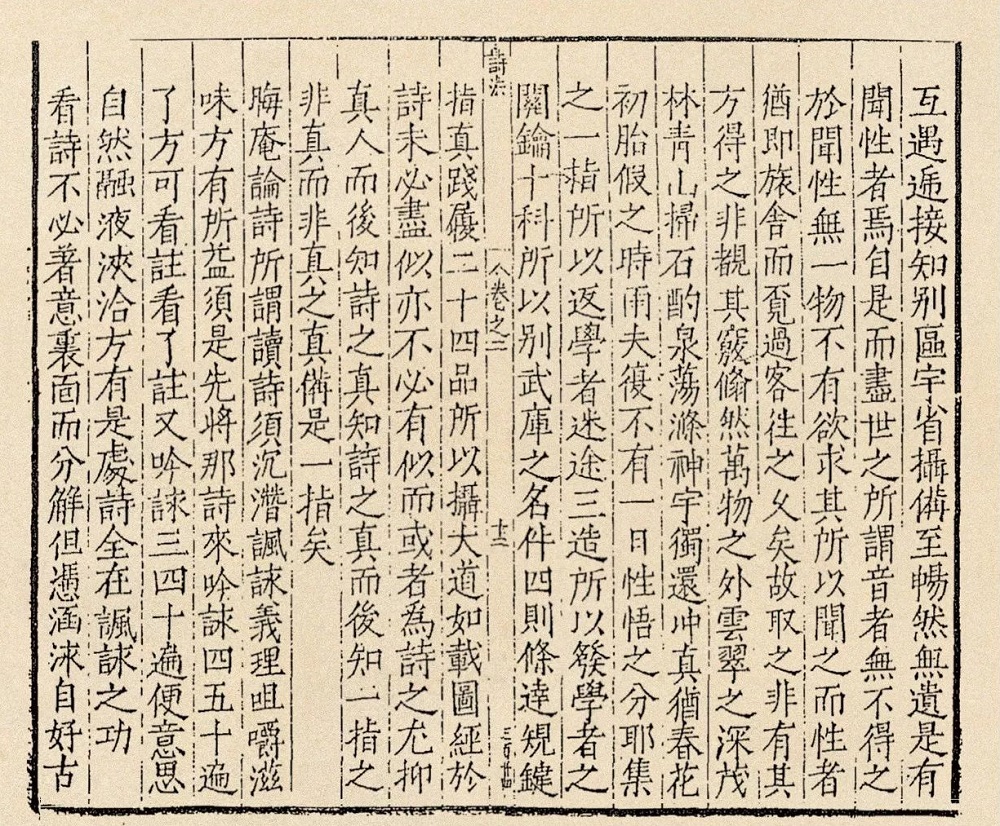 互遇遞接知别區宇省攝備至暢然無遺是有
聞性者焉自是而盡世之所謂音者無不得之
於聞性無一物不有欲求其所以聞之而性者
猶即旅舍而覓過客往之久矣故取之非有其
方得之非覩其窾翛然萬物之外雲翠之深茂
林青山掃石酌泉蕩滌神宇獨還冲真猶春花
初胎假之時雨夫復不有一日性悟之分耶集
之一指所以返學者迷途三造所以發學者之
關鑰十科所以别武庫之名件四則條達規鍵
詩法
卷之二
十二
指真踐履二十四品所以攝大道如載圖經於
詩未必盡似亦不必有似而或者為詩之尤抑
真人而後知詩之真知詩之真而後知一指之
非真而非真之真備是一指矣
晦庵論詩所謂讀詩須沉潛諷詠義理咀嚼滋
味方有所益須是先將那詩來吟詠四五十遍
了方可看註看了註又吟詠三四十遍便意思
自然融液浹洽方有是處詩全在諷詠之功
看詩不必著意裏面而分解但憑涵泳自好古